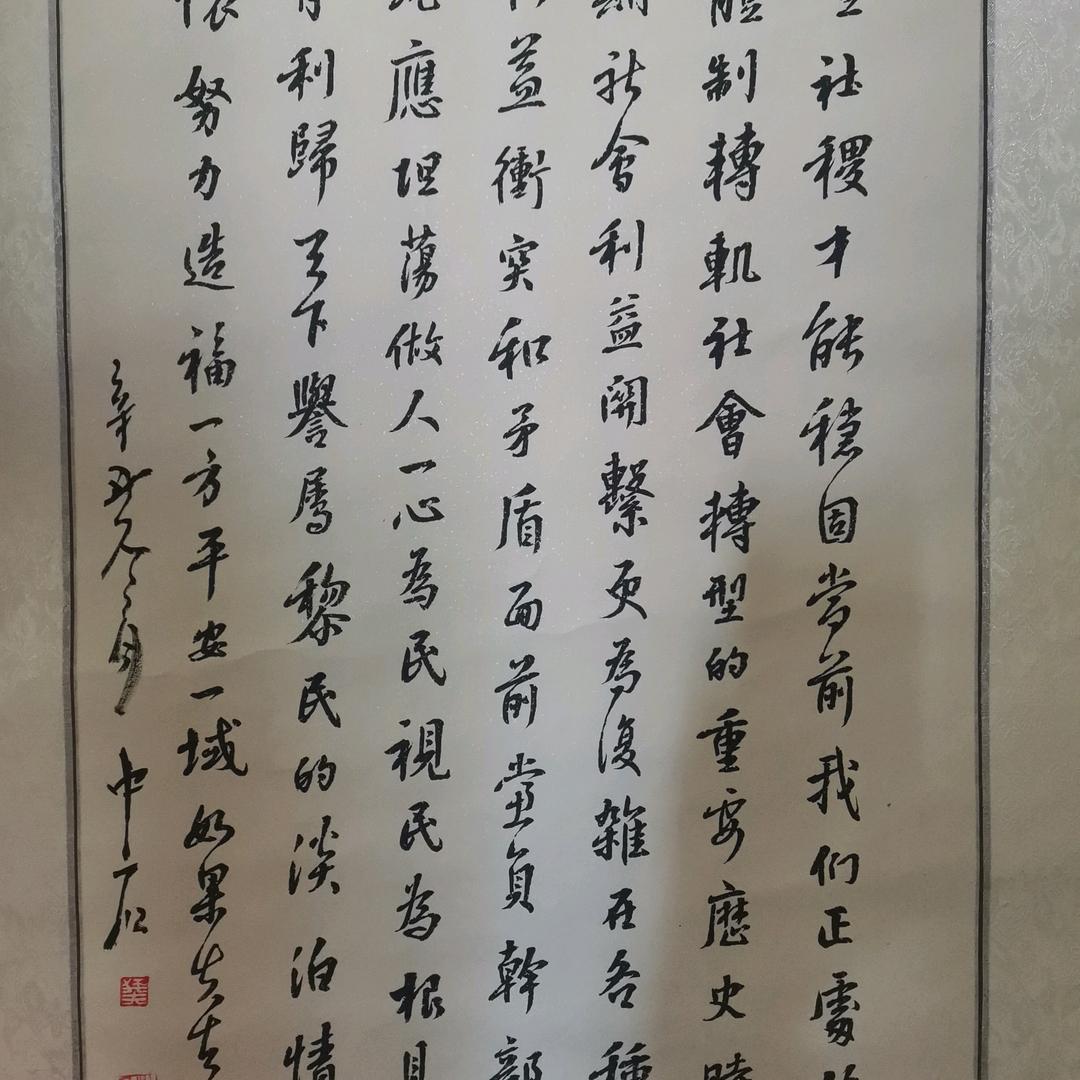 社稷才能穩固當前我们正處
體制轉軌社會轉型的重要歷史時
社會利益關繫更為復雜在各種
益衝突和矛盾面前黨員幹部
應坦蕩做人一心為民視民為根
利歸天下譽屬黎民的淡泊情
懷努力造福一方平安一域如果失去
辛丑冬月 中石